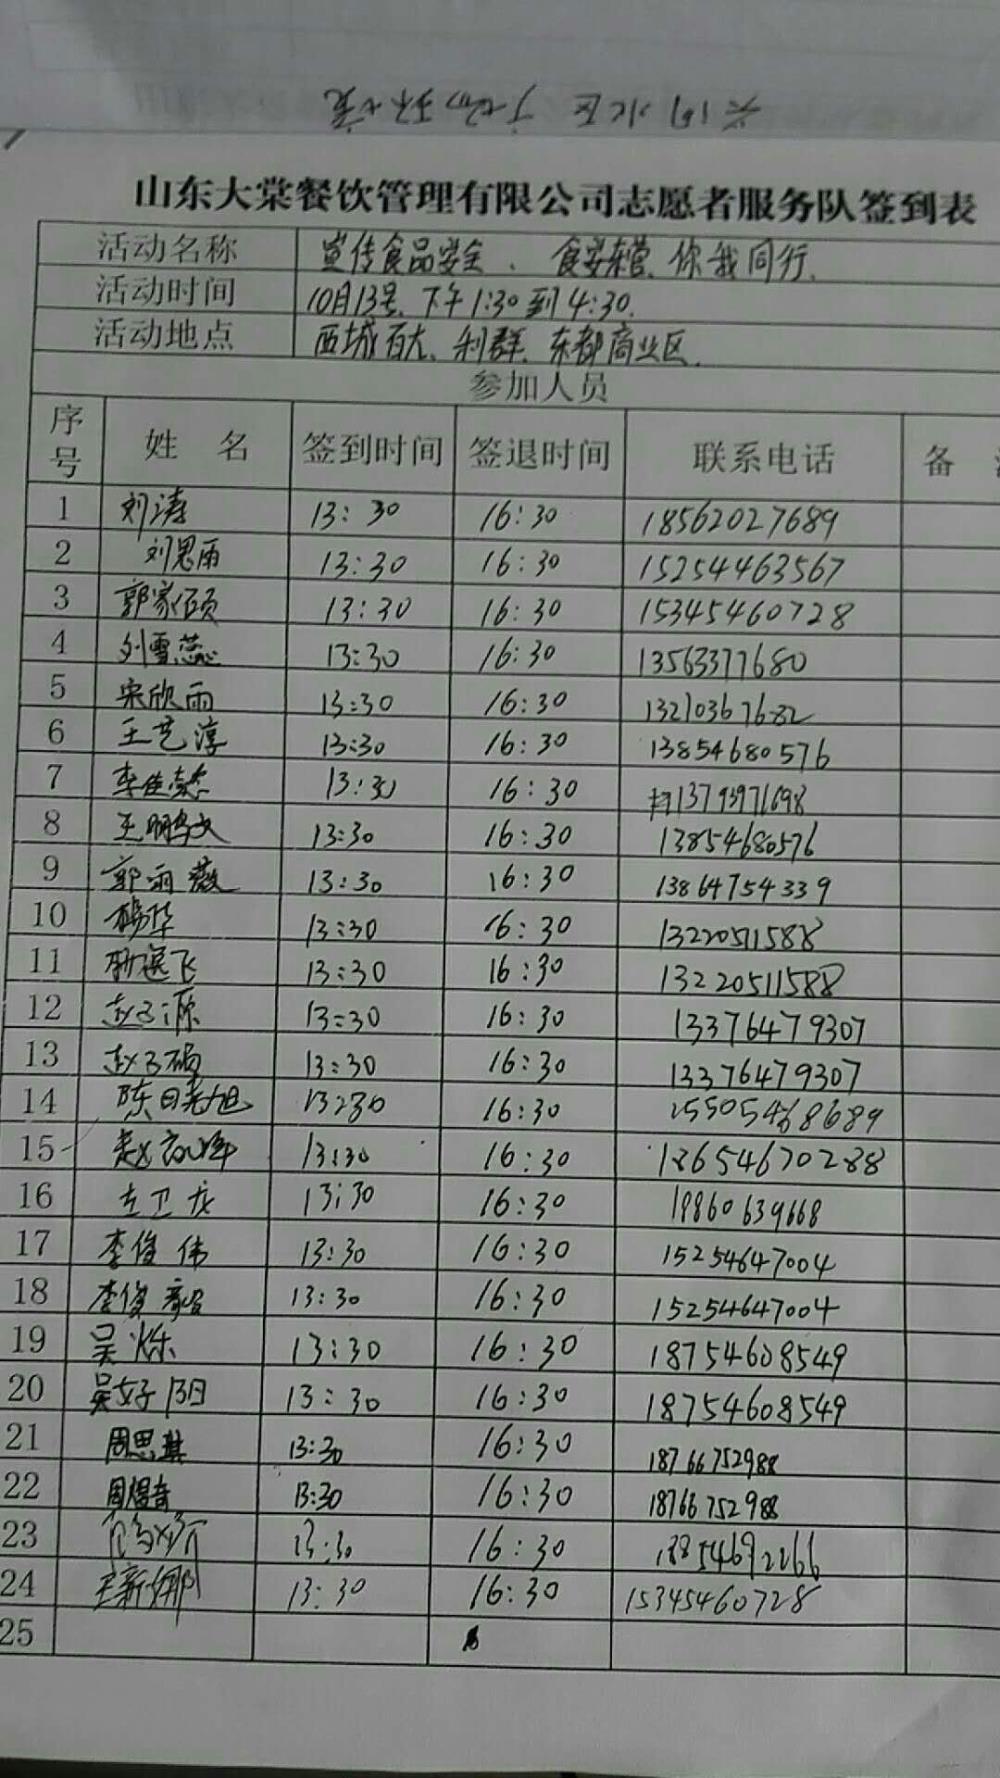 山东大棠餐饮管理有限公司志愿者服务队签到表
活动名称 宣传食品安全、食安东营、你我同行.
活动时间 10月13号.下午1:30到4:30.
活动地点 西城百大、利群、东都商业区.
参加人员
序号 姓名 签到时间 签退时间 联系电话 备
1 刘涛 13:30 16:30 18562027689
2 刘思雨 13:30 16:30 15254463567
3 郭家硕 13:30 16:30 15345460728
4 刘雪蕊 13:30 16:30 13563377680
5 宋欣雨 13:30 16:30 13210367682
6 王艺淳 13:30 16:30 13854680576
7 13:30 16:30 13793971698
8 王鹏文 13:30 16:30 13854680576
9 郭雨薇 13:30 16:30 13864754339
10 杨华 13:30 16:30 13220511588
11 13:30 16:30 13220511588
12 赵子源 13:30 16:30 13376479307
13 赵子硕 13:30 16:30 13376479307
14 陈日光旭 13:30 16:30 15505468689
15 13:30 16:30 18654670288
16 13:30 16:30 19860639668
17 李俊伟 13:30 16:30 15254647004
18 13:30 16:30 15254647004
19 吴烁 13:30 16:30 18754608549
20 吴好阳 13:30 16:30 18754608549
21 周思琪 13:30 16:30 18766752988
22 周煜奇 13:30 16:30 18766752988
23 13:30 16:30 13854692266
24 王新娜 13:30 16:30 15345460728
25